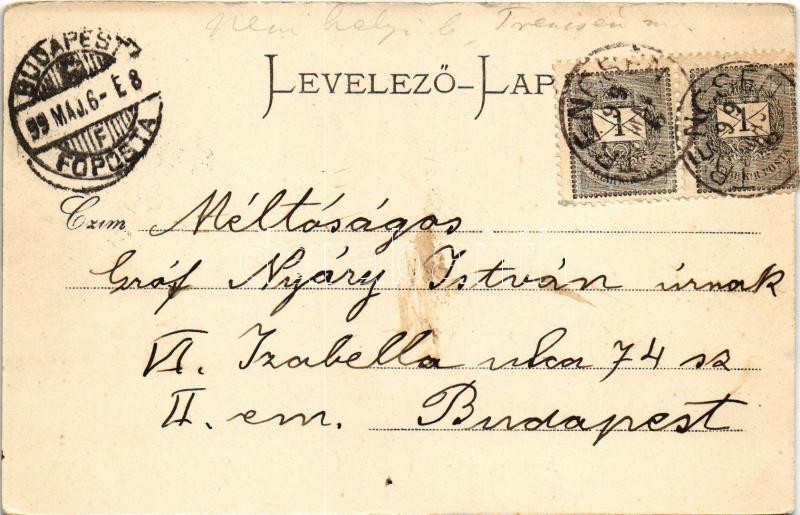 Nem helyi b. Trencsén m.
BUDAPEST
99 MÁJ. 6 - E 8
F
FŐPOSTA
LEVELEZŐ-LAP
1
1
Czim Méltóságos
Gróf Nyáry István úrnak
VI. Izabella utca 74 sz
II. em. Budapest